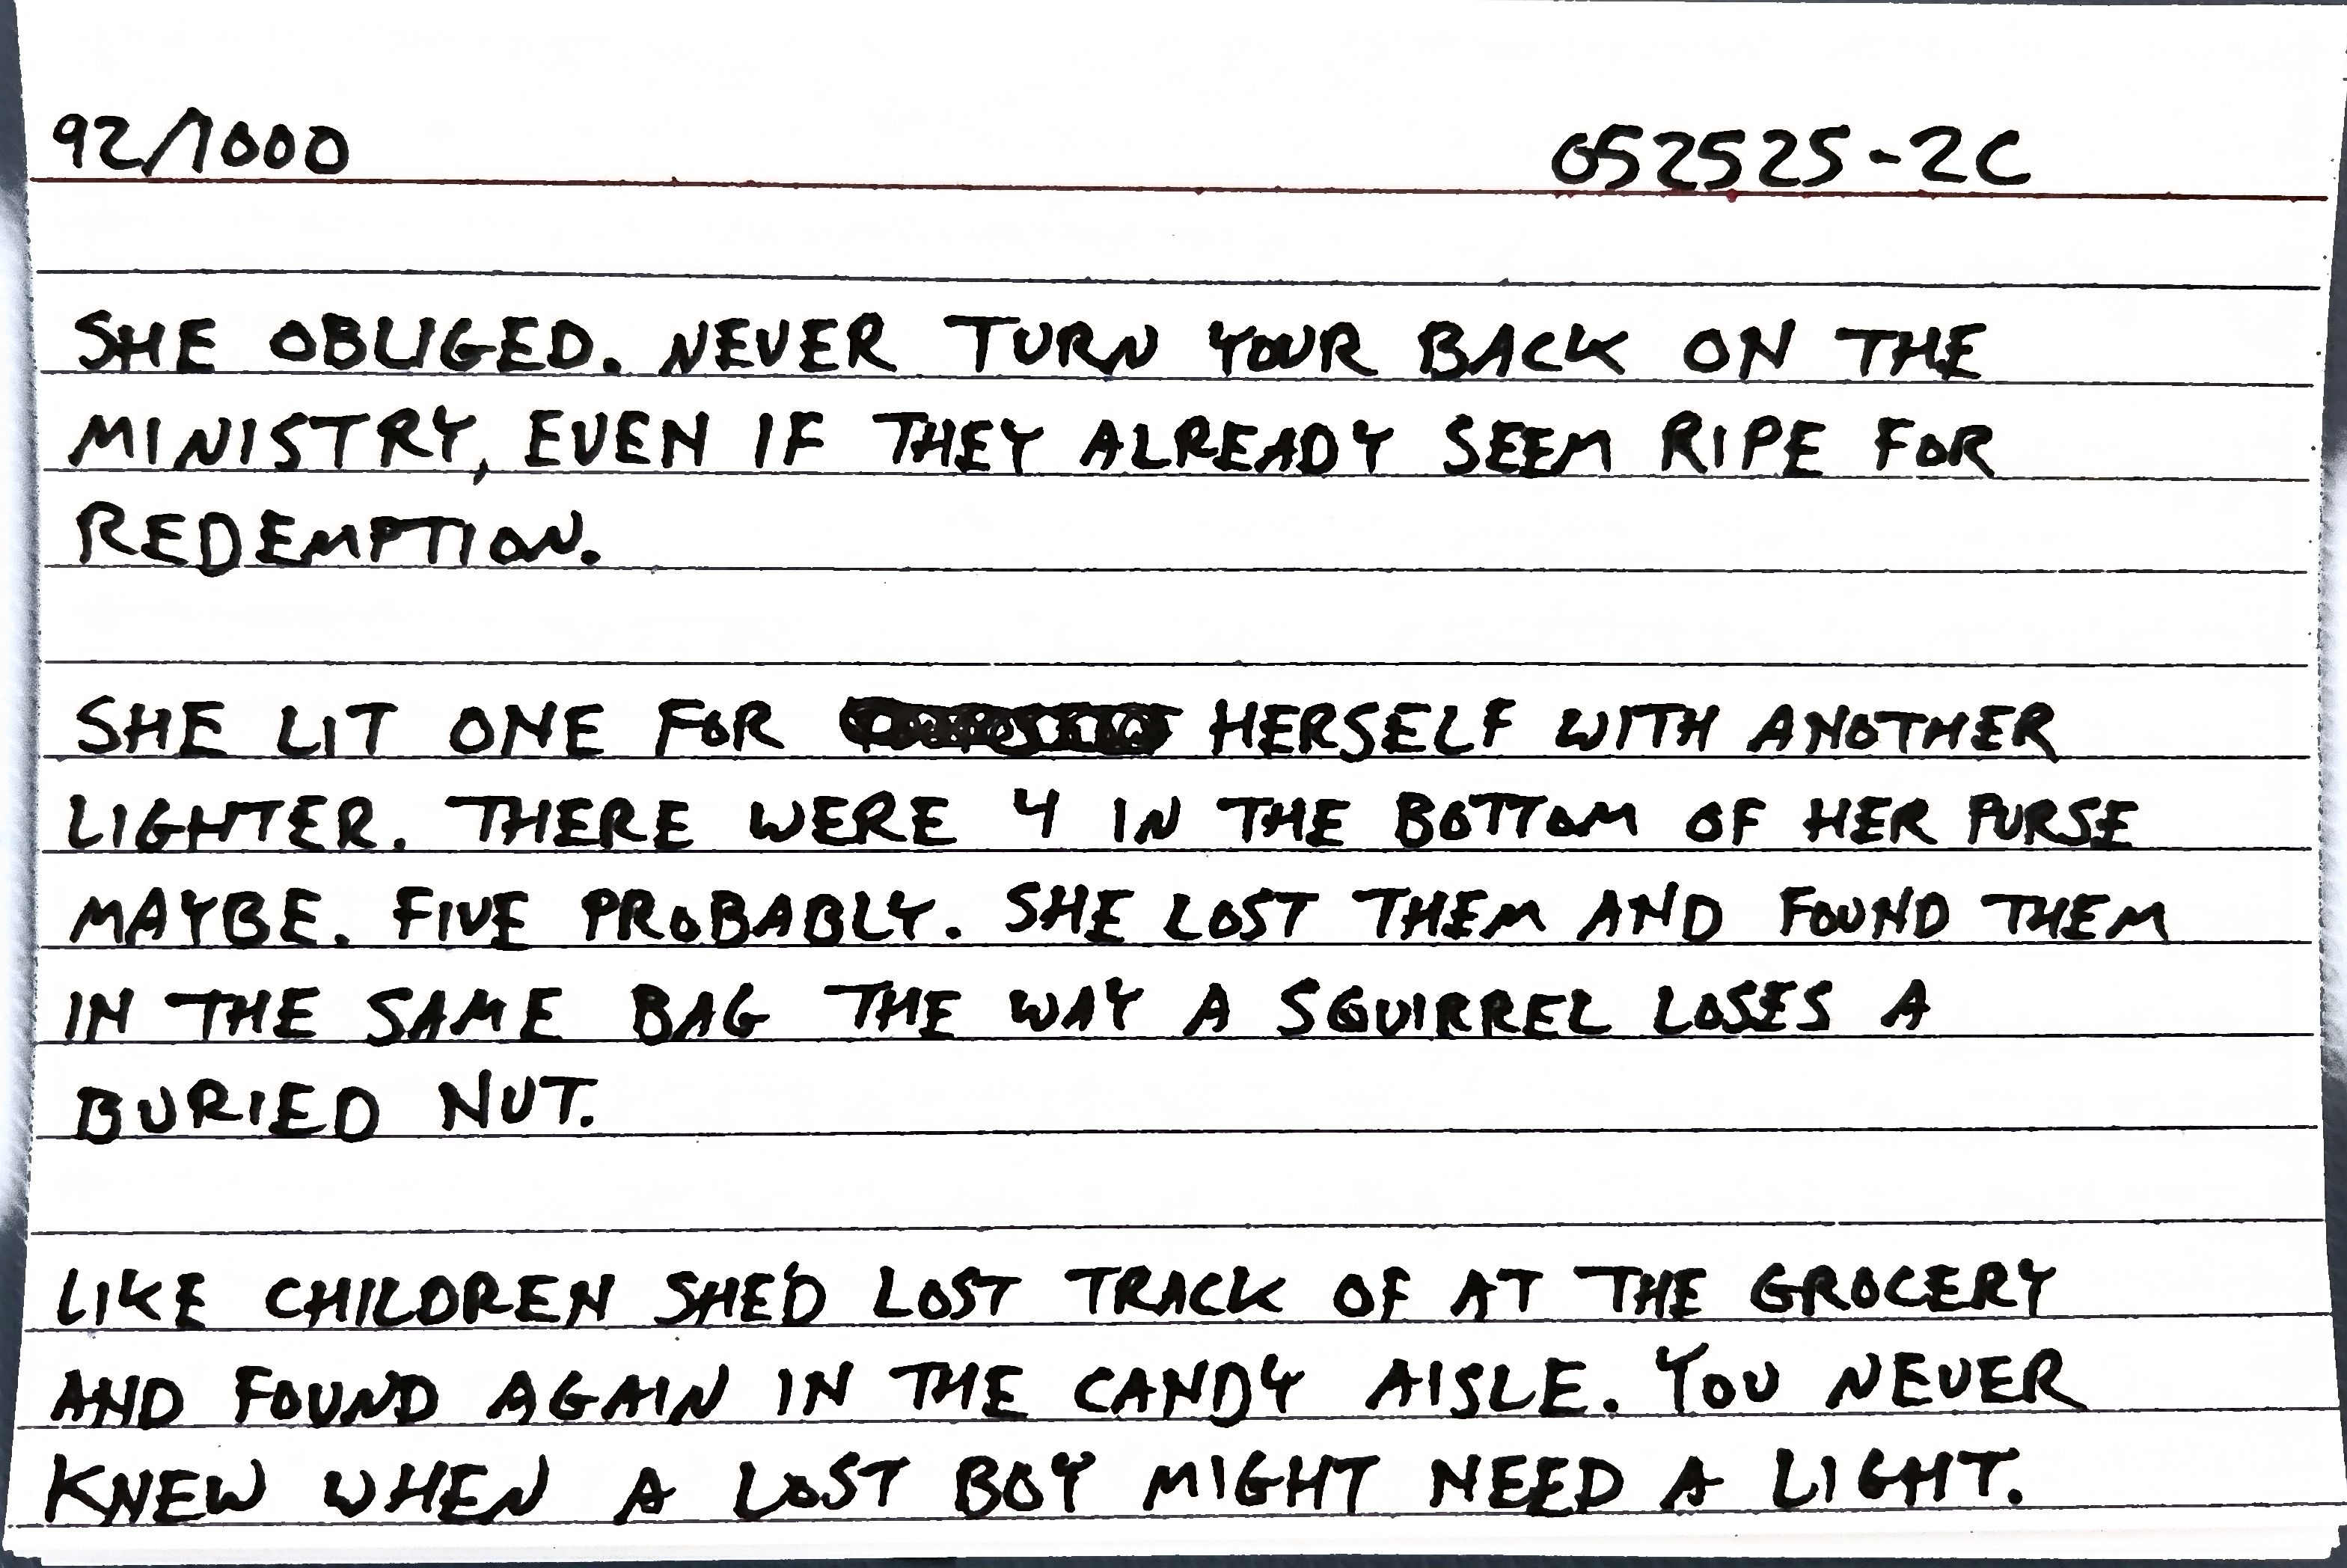 92/1000 052525-2C
SHE OBLIGED. NEVER TURN YOUR BACK ON THE
MINISTRY, EVEN IF THEY ALREADY SEEM RIPE FOR
REDEMPTION.
SHE LIT ONE FOR HERSELF WITH ANOTHER
LIGHTER. THERE WERE 4 IN THE BOTTOM OF HER PURSE
MAYBE. FIVE PROBABLY. SHE LOST THEM AND FOUND THEM
IN THE SAME BAG THE WAY A SQUIRREL LOSES A
BURIED NUT.
LIKE CHILDREN SHE'D LOST TRACK OF AT THE GROCERY
AND FOUND AGAIN IN THE CANDY AISLE. YOU NEVER
KNEW WHEN A LOST BOY MIGHT NEED A LIGHT.